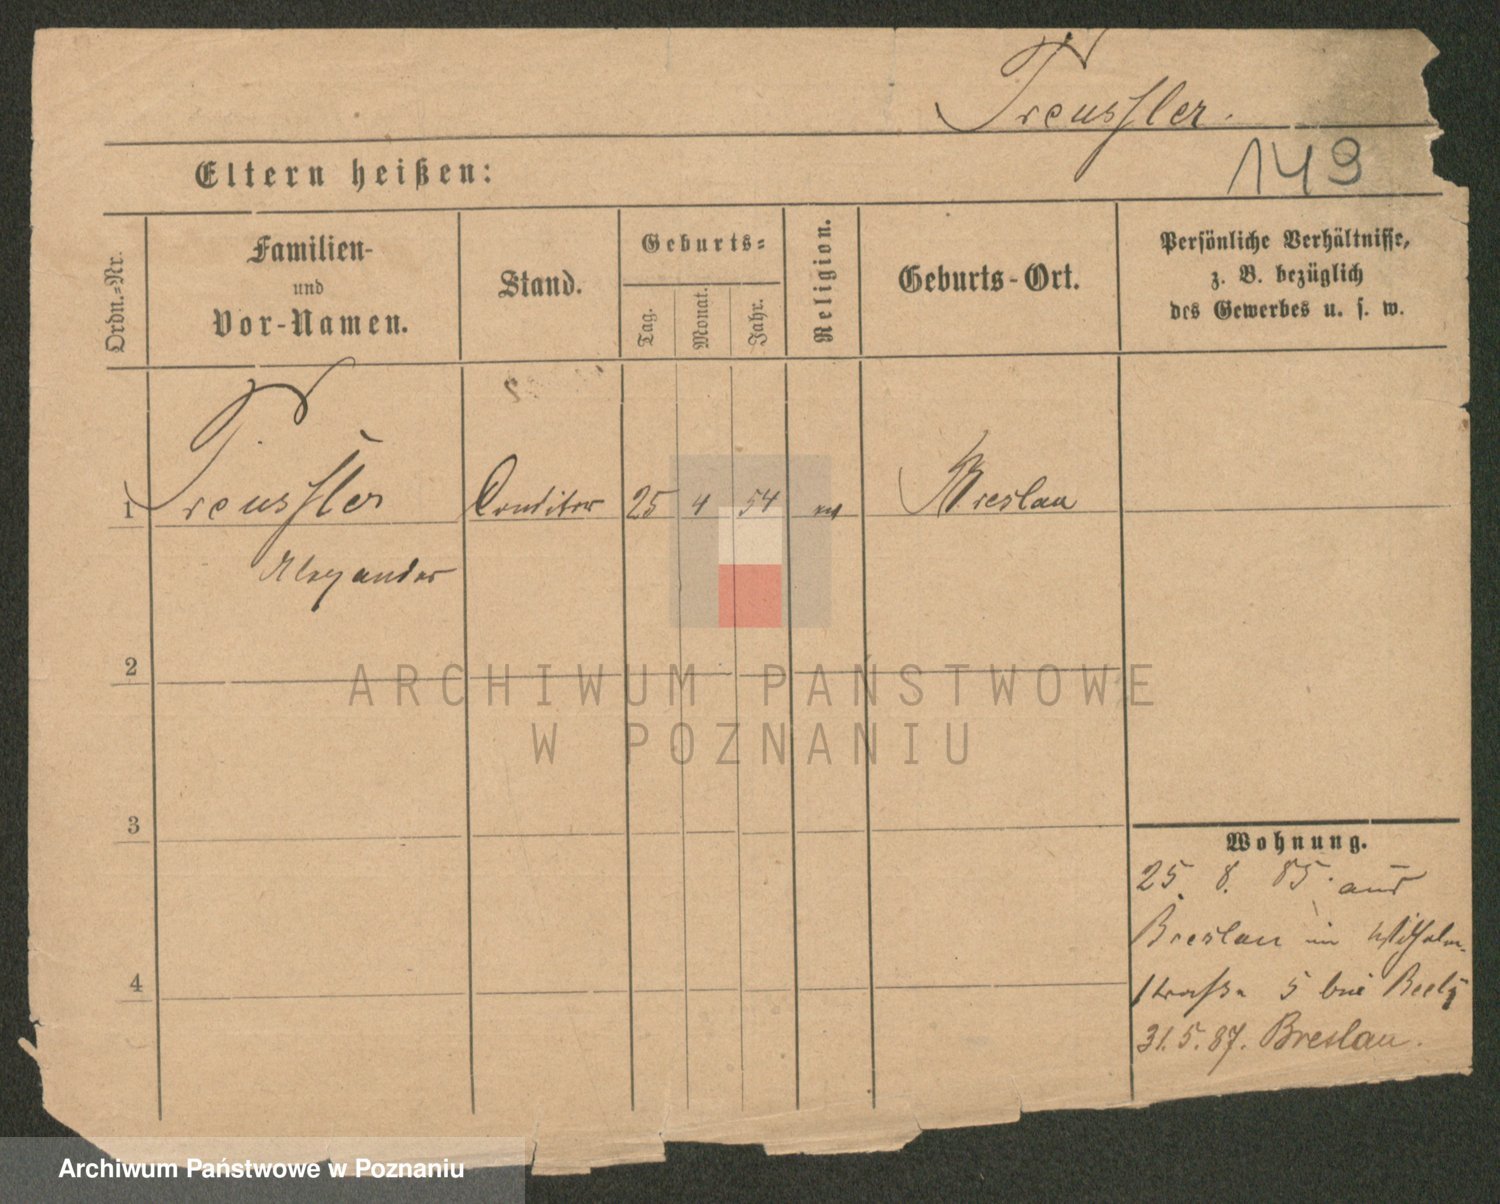 Treussler.
149
Eltern heißen:
Ordn.-Nr.
Familien-
und
Vor-Namen.
Stand.
Geburts-
Tag.
Monat.
Jahr.
Religion.
Geburts-Ort.
Persönliche Verhältnisse,
z. B. bezüglich
des Gewerbes u. s. w.
1 Treussler Conditor 25 4 54 ev Breslau
Alexander
2
3
4
Wohnung.
25. 8. 85. aus
Breslau in Wilhelm-
straße 5 bei Beely
31.5.87. Breslau.
ARCHIWUM PAŃSTWOWE
W POZNANIU
Archiwum Państwowe w Poznaniu